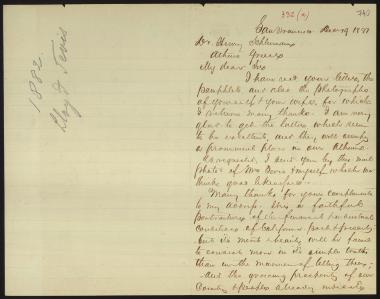 332 (a)
San Francisco Dec 19 1877
Dr. Henry Schliemann
Athens Greece
My dear Sir
I have recd your letter, the
pamphlets and also the photographs
of yourself & your wife, for which
I return many thanks. I am very
glad to get the latter which seem
to be excellent, and they will occupy
a prominent place in our Album.
As requested, I send you by this mail
Photos of Mrs Tevis & myself, which we
think good likenesses.
Many thanks for your compliments
to my
is a faithful
of the financial
of California, past & present;
but its merit & beauty will be found
to consist more in its simple truth
than in the manner of telling them;
and the growing prosperity of our
Country & people already
1882.
Lloyd Tevis